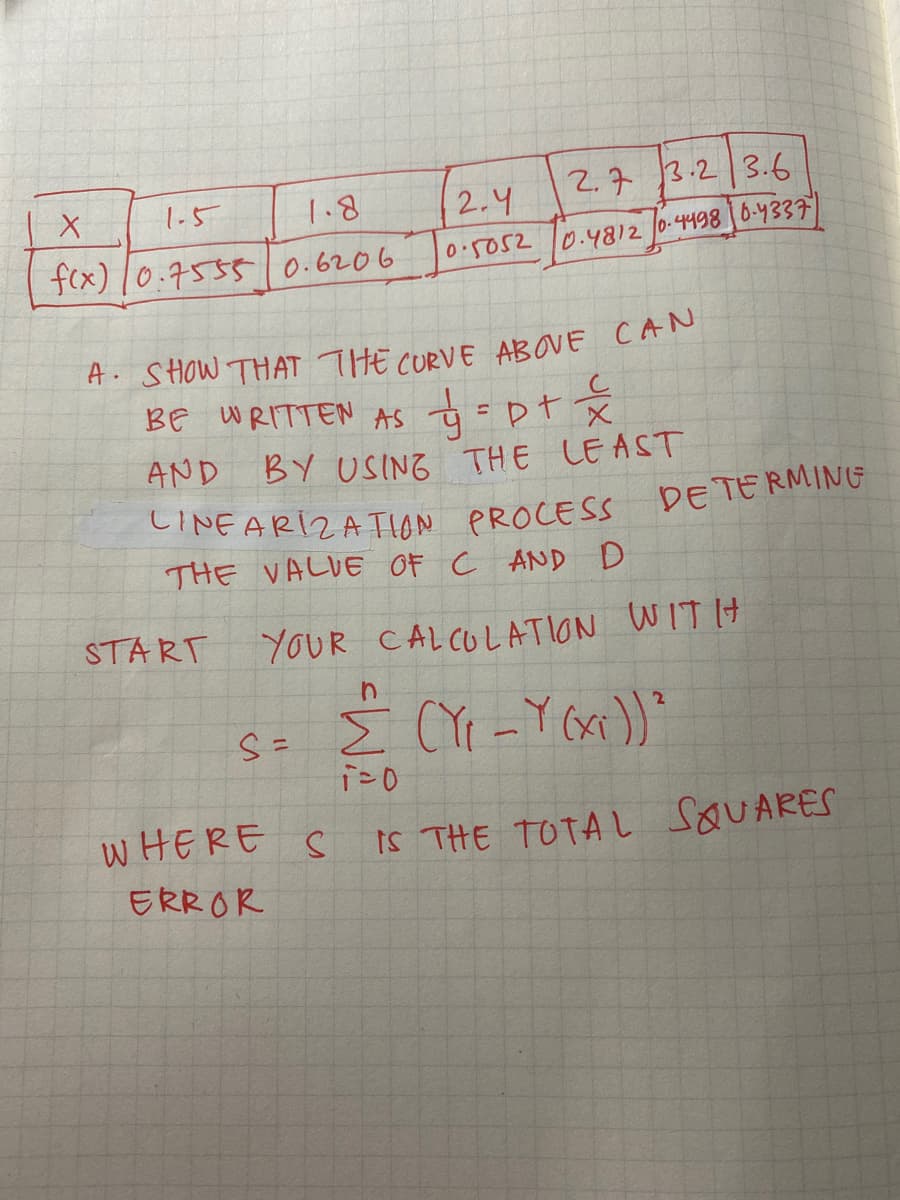 X 1.5 1.8 2.4 2.7 3.2 3.6
f(x) 0.7555 0.6206 0.5052 0.4812 0.4498 0.4337
A. SHOW THAT THE CURVE ABOVE CAN
BE WRITTEN AS 1/y = D + C/X
AND BY USING THE LEAST
LINEARIZATION PROCESS DETERMINE
THE VALUE OF C AND D
START YOUR CALCULATION WITH
S = n Σ i=0 (Yi - Y(xi))²
WHERE S IS THE TOTAL SQUARES
ERROR